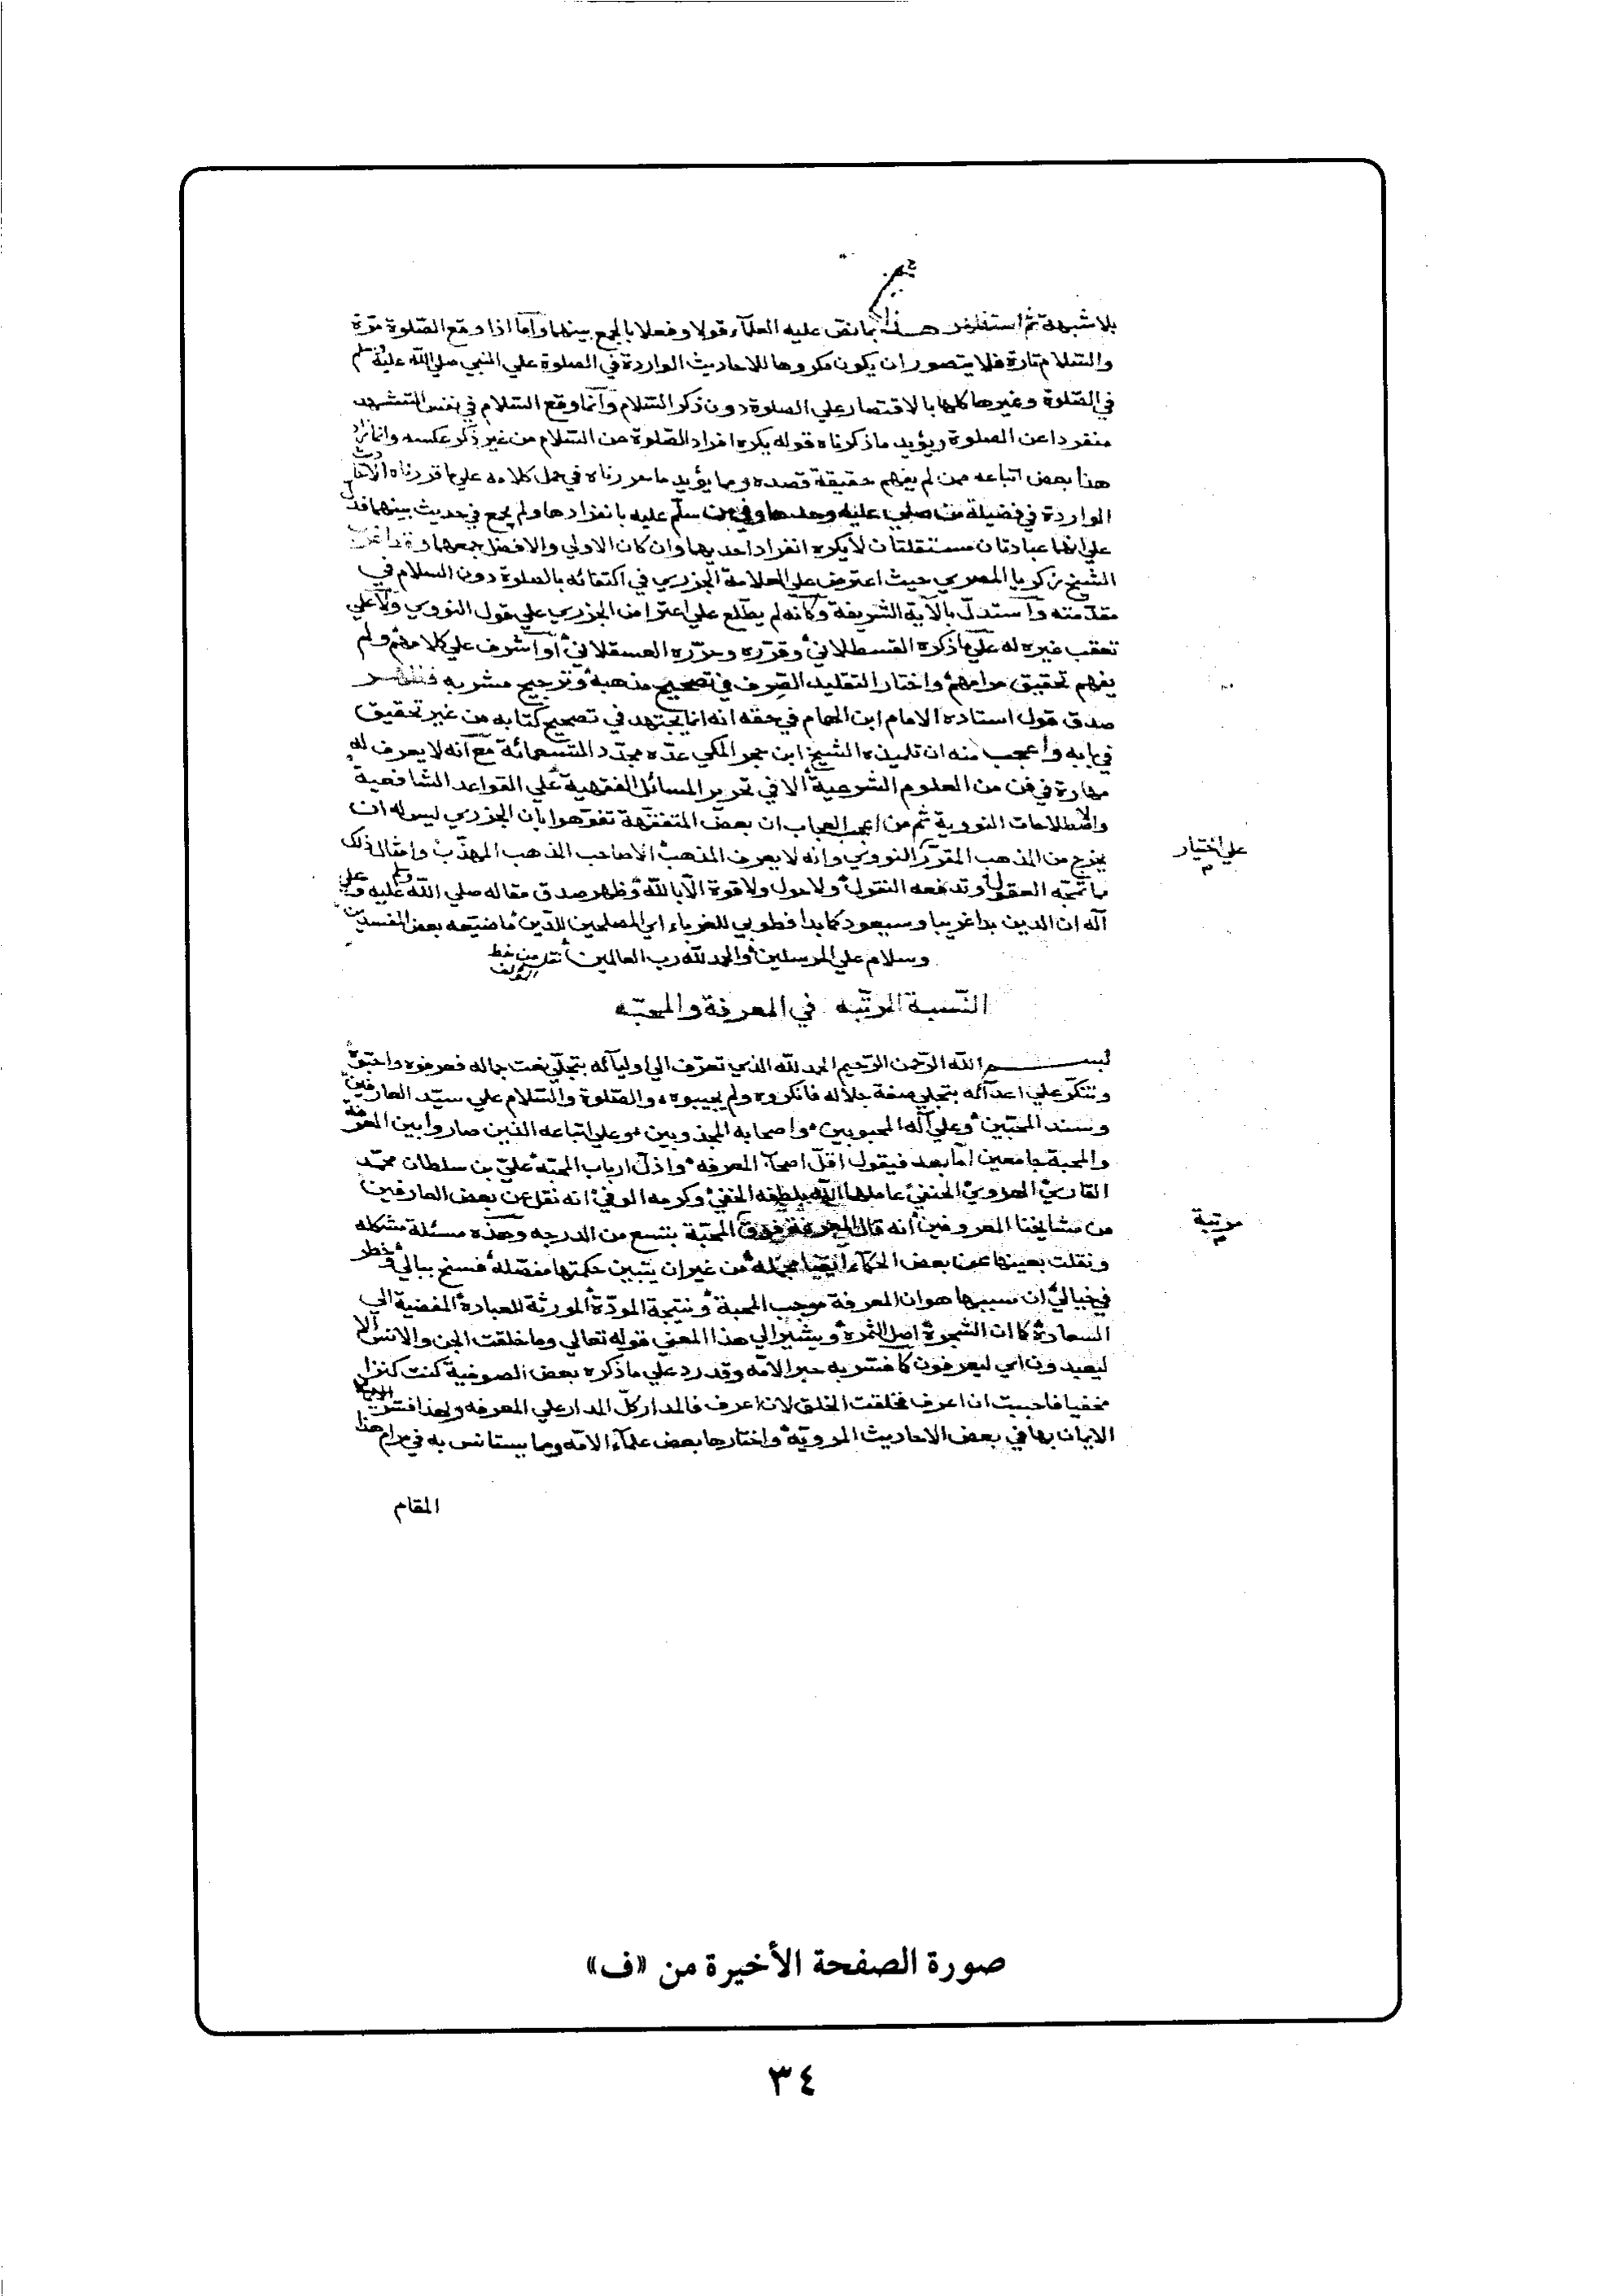 بلا شبهة ثم استظهر هذا بما نقى عليه العلمآء قولا وفعلا بالجمع بينهما وأما اذا وقع الصّلوة مرّة
والسّلام تارة فلا يتصور ان يكون مكروها للاحاديث الواردة في الصلوة علي النبي صلي الله عليه وسلم
في الصّلوة وغيرها كلها بالاقتصار علي الصلوة دون ذكر السّلام وآنما وقع السّلام في نفس التشهد
منفردا عن الصلوة ويؤيد ما ذكرناه قوله يكره افراد الصّلوة من السّلام من غير ذكر عكسه وانما زاد
هذا بعض اتباعه ممن لم يفهم حقيقة قصده ومما يؤيد ما حررناه في حمل كلامه علي ما قررناه الاحاديث
الواردة في فضيلة من صلي عليه وحدها وفي من سلّم عليه بانفرادها ولم يجمع في حديث بينهما فدل
علي انهما عبادتان مستقلتان لا يكره انفراد احديهما وان كان الاولي والافضل جمعهما وقد اغرب
الشيخ زكريا المصري حيث اعترض علي العلامة الجزري في اكتفائه بالصلوة دون السلام في
مقدّمته وآستدلّ بالآية الشريفة وكانه لم يطّلع علي اعتراض الجزري علي قول النووي ولا علي
تعقب غيره له علي ما ذكره القسطلاني وقرّره وحرّره العسقلاني أو أشرف علي كلامهم ولم
يفهم تحقيق مرامهم واختار التقليد الصّرف في تصحيح مذهبه وترجيح مشربه فظهر
صدق قول استاده الامام ابن الهمام في حقه انه انما يجتهد في تصحيح كتابه من غير تحقيق
في بابه وأعجب منه ان تلميذه الشيخ ابن حجر المكي عدّه مجدّد التسعمائة مع آنه لا يعرف له
مهارة في فن من العلوم الشرعية الا في تحرير المسائل الفقهية علي القواعد الشافعية
والاصطلاحات النووية ثم من اعجب العجاب ان بعض المتفقهة تفوّهوا بأن الجزري ليس له ان
يخرج من المذهب المقرّر النووي وانه لا يعرف المذهب الا صاحب المذهب المهذّب وامثال ذلك
علي اختيار
م
ما تمجّه العقول وتدفعه النقول ولا حول ولا قوة الّا بالله وظهر صدق مقاله صلي الله عليه وسلم وعلي
آله ان الدين بدا غريبا وسيعود كما بدا فطوبي للغرباء اي المصلحين للدّين ما ضيّعه بعض المفسدين
وسلام علي المرسلين والحمد لله رب العالمين نقل من خط
المؤلف
النّسبة المرتّبه في المعرفة والمحبّه
بسم الله الرّحمن الرّحيم الحمد لله الذي تعرّف الي اوليآئه بتجلّي نعت جماله فعرفوه واحبّوه
وتنكّر علي اعدآئه بتجلي صفة جلاله فانكروه ولم يحيبوه والصّلوة والسّلام علي سيّد العارفين
وسند المحبّين وعلي آله المحبوبين واصحابه المجذوبين وعلي اتباعه الذين صاروا بين المعرفة
والمحبة جامعين امّا بعد فيقول اقلّ اصحاب المعرفه واذلّ ارباب المحبّه عليّ بن سلطان محمّد
القاريّ الهرويّ الحنفيّ عاملهما الله بلطفه الخفيّ وكرمه الوفيّ انه نقل عن بعض العارفين
من مشايخنا المعروفين أنه قال المعرفة فوق المحبّة بتسع من الدرجه وهذه مسئلة مشكله
مرتبة
م
ونقلت بعينها عن بعض الحكمآء ايضا مجمله من غير ان يتبين حكمتها مفصّله فسنح ببالي وخطر
في خيالي أن سببها هو ان المعرفة موجب المحبة ونتيجة المودّة المورثة للعبادة المفضية الي
السعادة كما ان الشجرة اصل الثمرة ويشير الي هذا المعني قوله تعالي وما خلقت الجن والانس الا
ليعبدون اي ليعرفون كما فسّر به حبر الامّه وقد رد علي ما ذكره بعض الصوفية كنت كنزا
مخفيا فاحببت ان اعرف فخلقت الخلق لان اعرف فالمدار كلّ المدار علي المعرفه ولهذا فسّرت
الايمان بها في بعض الاحاديث المرويّة واختارها بعض علمآء الامّه ومما يستانس به في مرام هذا
المقام
صورة الصفحة الأخيرة من «ف»
٣٤